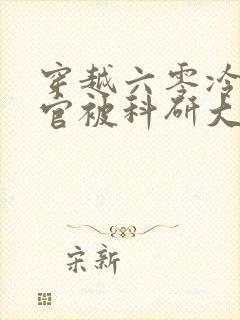 穿越六零冷
官被科研大
宋新